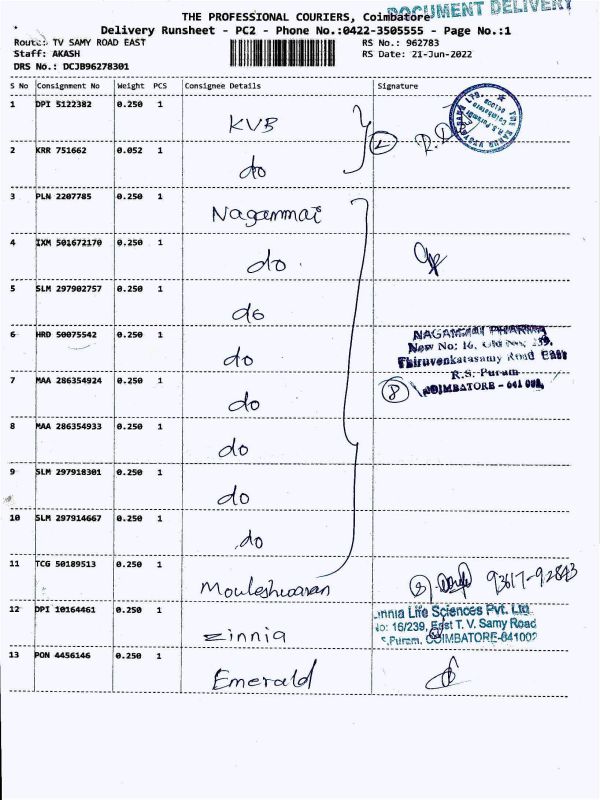 DOCUMENT DELIVERY
THE PROFESSIONAL COURIERS, Coimbatore
Delivery Runsheet - PC2 - Phone No.:0422-3505555 - Page No.:1
Route: TV SAMY ROAD EAST
RS No.: 962783
Staff: AKASH
RS Date: 21-Jun-2022
DRS No.: DCJB96278301
S No Consignment No Weight PCS Consignee Details Signature
1 DPI 5122382 0.250 1 KVB
2 KRR 751662 0.052 1 do
3 PLN 2207785 0.250 1 Nagammai
4 IXM 501672170 0.250 1 do
5 SLM 297902757 0.250 1 do
6 HRD 50075542 0.250 1 do
NAGAMMAI PHARMA
New No: 16, Old No: 139,
Thiruvenkatasamy Road East
R.S. Puram
COIMBATORE - 641 002,
7 MAA 286354924 0.250 1 do
8
8 MAA 286354933 0.250 1 do
9 SLM 297918301 0.250 1 do
10 SLM 297914667 0.250 1 do
11 TCG 50189513 0.250 1 Mouleshwaran
93617-92843
12 DPI 10164461 0.250 1 Zinnia
Zinnia Life Sciences Pvt. Ltd
No: 16/239, East T. V. Samy Road
R.S.Puram, COIMBATORE-641002
13 PON 4456146 0.250 1 Emerald